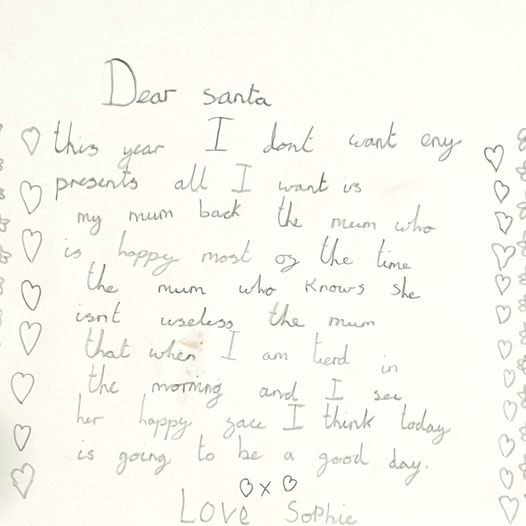 Dear santa
this year I dont want eny
presents all I want is
my mum back the mum who
is happy most og the time
the mum who knows she
isnt useless the mum
that when I am tierd in
the morning and I see
her happy gace I think today
is going to be a good day.
x
Love Sophie